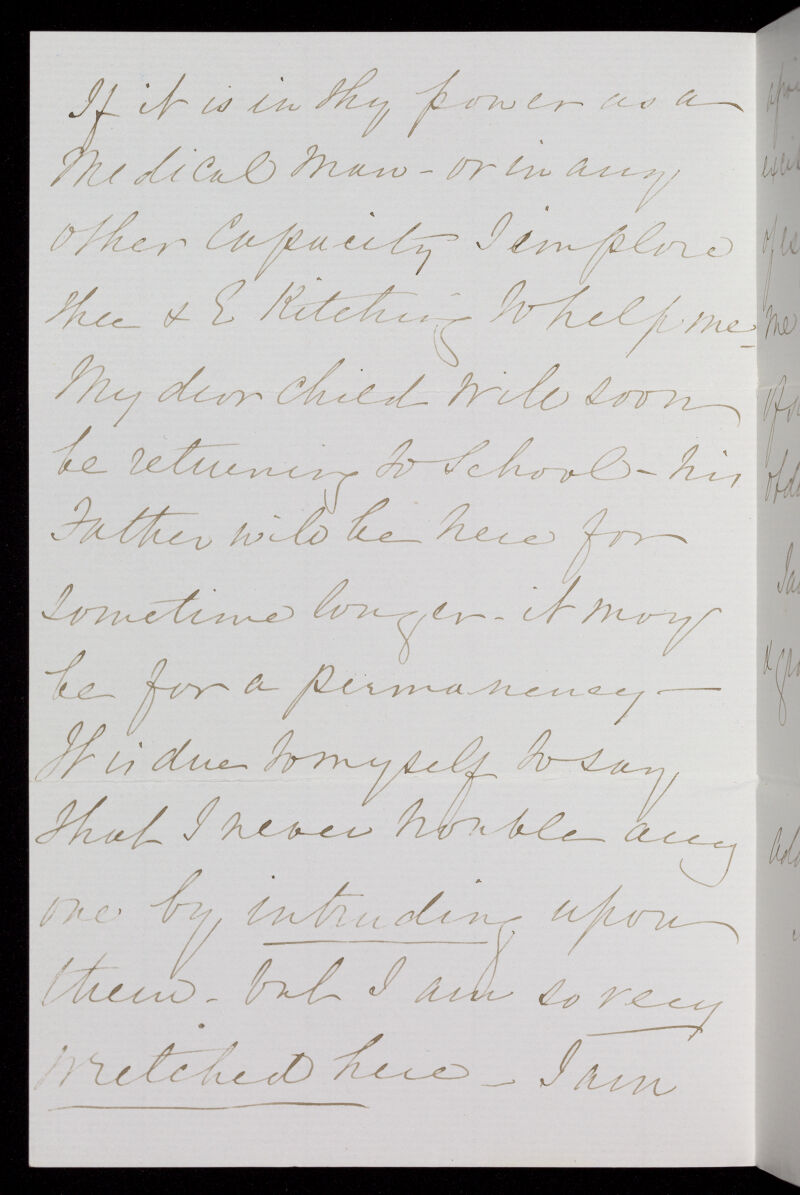 If it is in thy power as a
Medical Man - or in any
other Capacity I implore
thee & E Kitching to help me -
My dear child will soon
be returning to School - his
Father will be here for
sometime longer - it may
be for a permanency -
It is due to myself to say
that I never trouble any
one by intruding upon
them - but I am so very
wretched here - I am
me